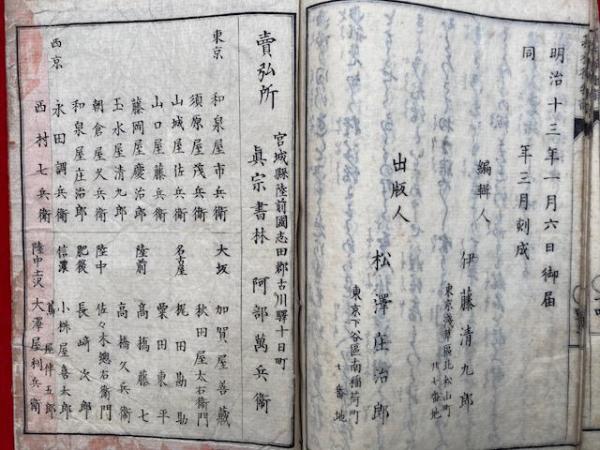 明治十三年一月六日御届
同　年三月刻成
編輯人
伊藤清九郎
東京浅草區北松山町
出版人
松澤庄治郎
東京下谷區南稲荷町
十番地
賣弘所
宮城縣陸前國志田郡古川驛十日町
眞宗書林　阿部萬兵衛
東京
和泉屋市兵衛
須原屋茂兵衛
山城屋佐兵衛
山口屋藤兵衛
藤岡屋慶治郎
玉水屋清九郎
朝倉屋久兵衛
和泉屋庄治郎
西京
永田調兵衛
西村七兵衛
大坂
加賀屋善藏
秋田屋太右衛門
名古屋
梶田勘助
栗田東平
陸前
高橋藤七
高橋久兵衛
陸中
佐々木總右衛門
肥後
長崎次郎
信濃
小桝屋喜太郎
蔦屋伴五郎
大澤屋利兵衛